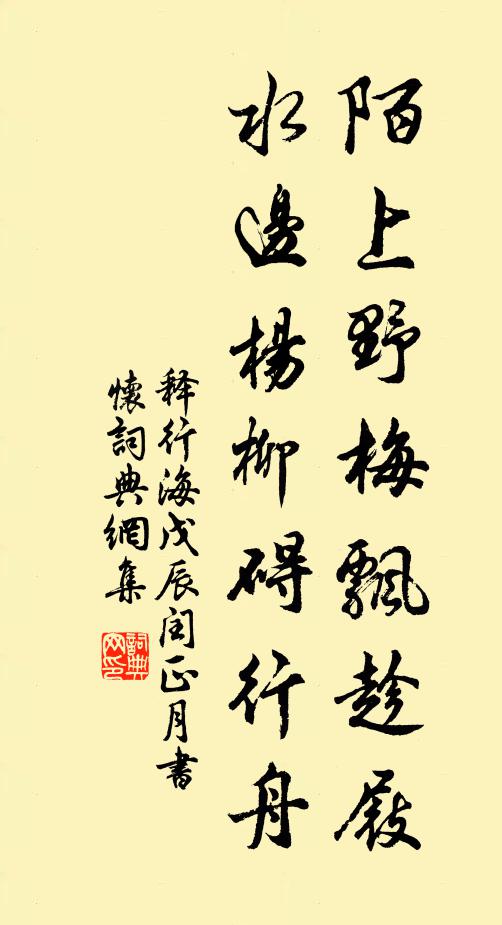 陌上野梅飄趁屐
水邊楊柳碍行舟
释行海戊辰闰正月書
懷詞典網集
詞典网印